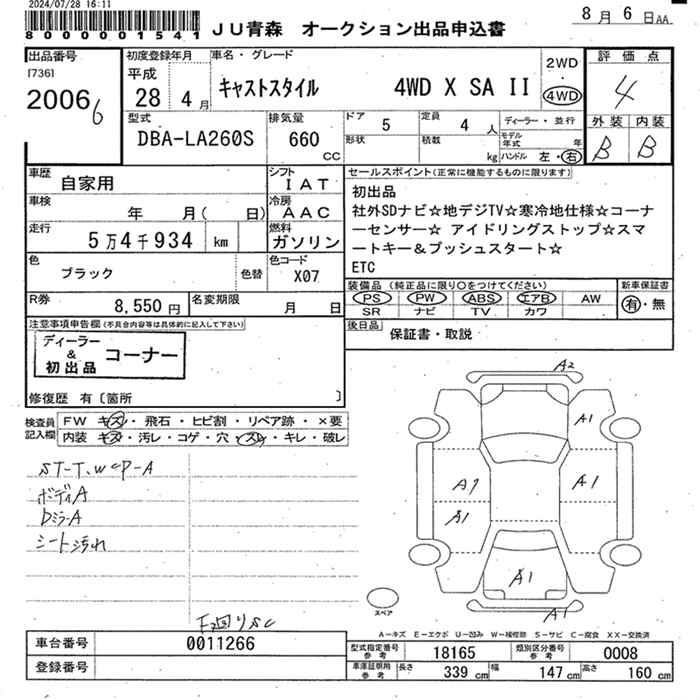 2024/07/28 16:11
8000001541
JU青森 オークション出品申込書
8月6日AA
出品番号
[736]
2006 6
初度登録年月
平成
28 4月
車名・グレード
キャストスタイル 4WD X SA II
2WD
・
4WD
評価点
4
外装 内装
B B
型式
DBA-LA260S
排気量
660
CC
ドア 5
形状
定員 4 人
積載 kg
ディーラー・並行
モデル年式 年
ハンドル 左・右
車歴
自家用
シフト
IAT
車検
年 月( 日)
冷房
AAC
走行
5万4千934 km
燃料
ガソリン
色
ブラック
色替
色コード
X07
R券
8,550円
名変期限
月 日
セールスポイント(正常に機能するものに限ります)
初出品
社外SDナビ☆地デジTV☆寒冷地仕様☆コーナ
ーセンサー☆ アイドリングストップ☆スマ
ートキー&プッシュスタート☆
ETC
装備品 (純正品に限り○をつけてください)
PS PW ABS エアB AW
SR ナビ TV カワ
新車保証書
有・無
後日品
保証書・取説
注意事項申告欄(不具合内容等は具体的に記入して下さい)
ディーラー
&
初出品
コーナー
修復歴 有〔箇所 〕
検査員
記入欄
FW キズ・飛石・ヒビ割・リペア跡・×要
内装 キズ・汚レ・コゲ・穴・スレ・キレ・破レ
ST-T.WCP-A
ボディA
DミラーA
シート汚れ
A2
A1
A1
A1
A1
A1
A1
スペア
A－キズ E－エクボ U－凹み W－補修跡 S－サビ C－腐食 XX－交換済
車台番号
0011266
登録番号
型式指定番号
参考
18165
類別区分番号
参考
0008
車庫証明用
参考
長さ 339 cm 幅 147 cm 高さ 160 cm